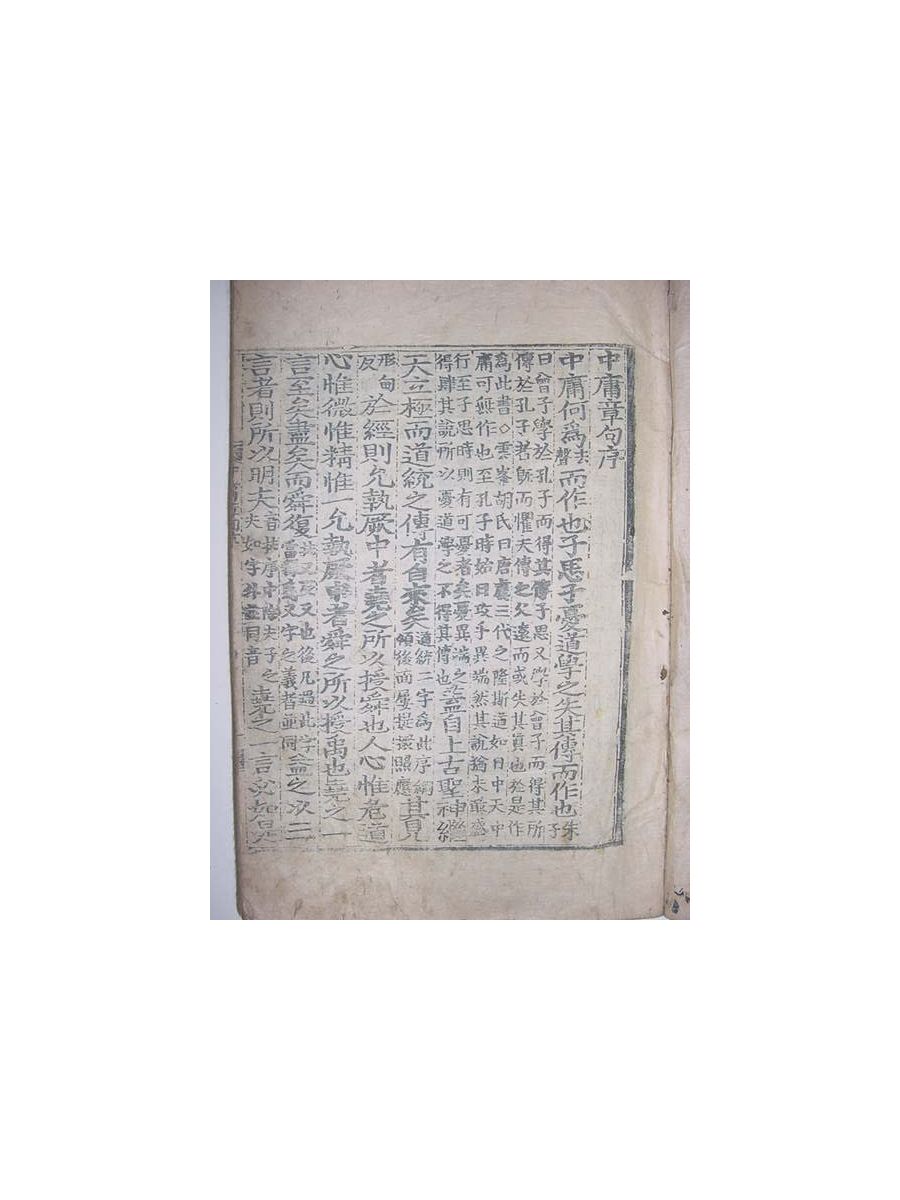 中庸章句序
中庸何爲去聲而作也子思子憂道學之失其傳而作也朱子
曰曾子學於孔子而得其傳子思又學於曾子而得其所
傳於孔子者旣而懼夫傳之久遠而或失其眞也於是作
爲此書○雲峯胡氏曰唐虞三代之隆斯道如日中天中
庸可無作也至孔子時始曰攻乎異端然其說猶未敢盛
行至子思時則有可憂者矣憂異端之
得肆其說所以憂道學之不得其傳也蓋自上古聖神繼
天立極而道統之傳有自來矣道統二字爲此序綱領後面屢提掇照應其見
形甸反於經則允執厥中者堯之所以授舜也人心惟危道
心惟微惟精惟一允執厥中者舜之所以授禹也堯之一
言至矣盡矣而舜復扶又反又也後凡過此字當釋爲又字之義者並同益之以三
言者則所以明夫音扶序中除夫子之夫如字外並同音堯之一言必如是